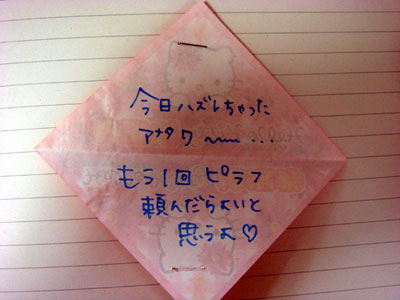 今日ハズレちゃった
アナタワ〜〜...
もう1回 ピラフ
頼んだらよいと
思うよ♡